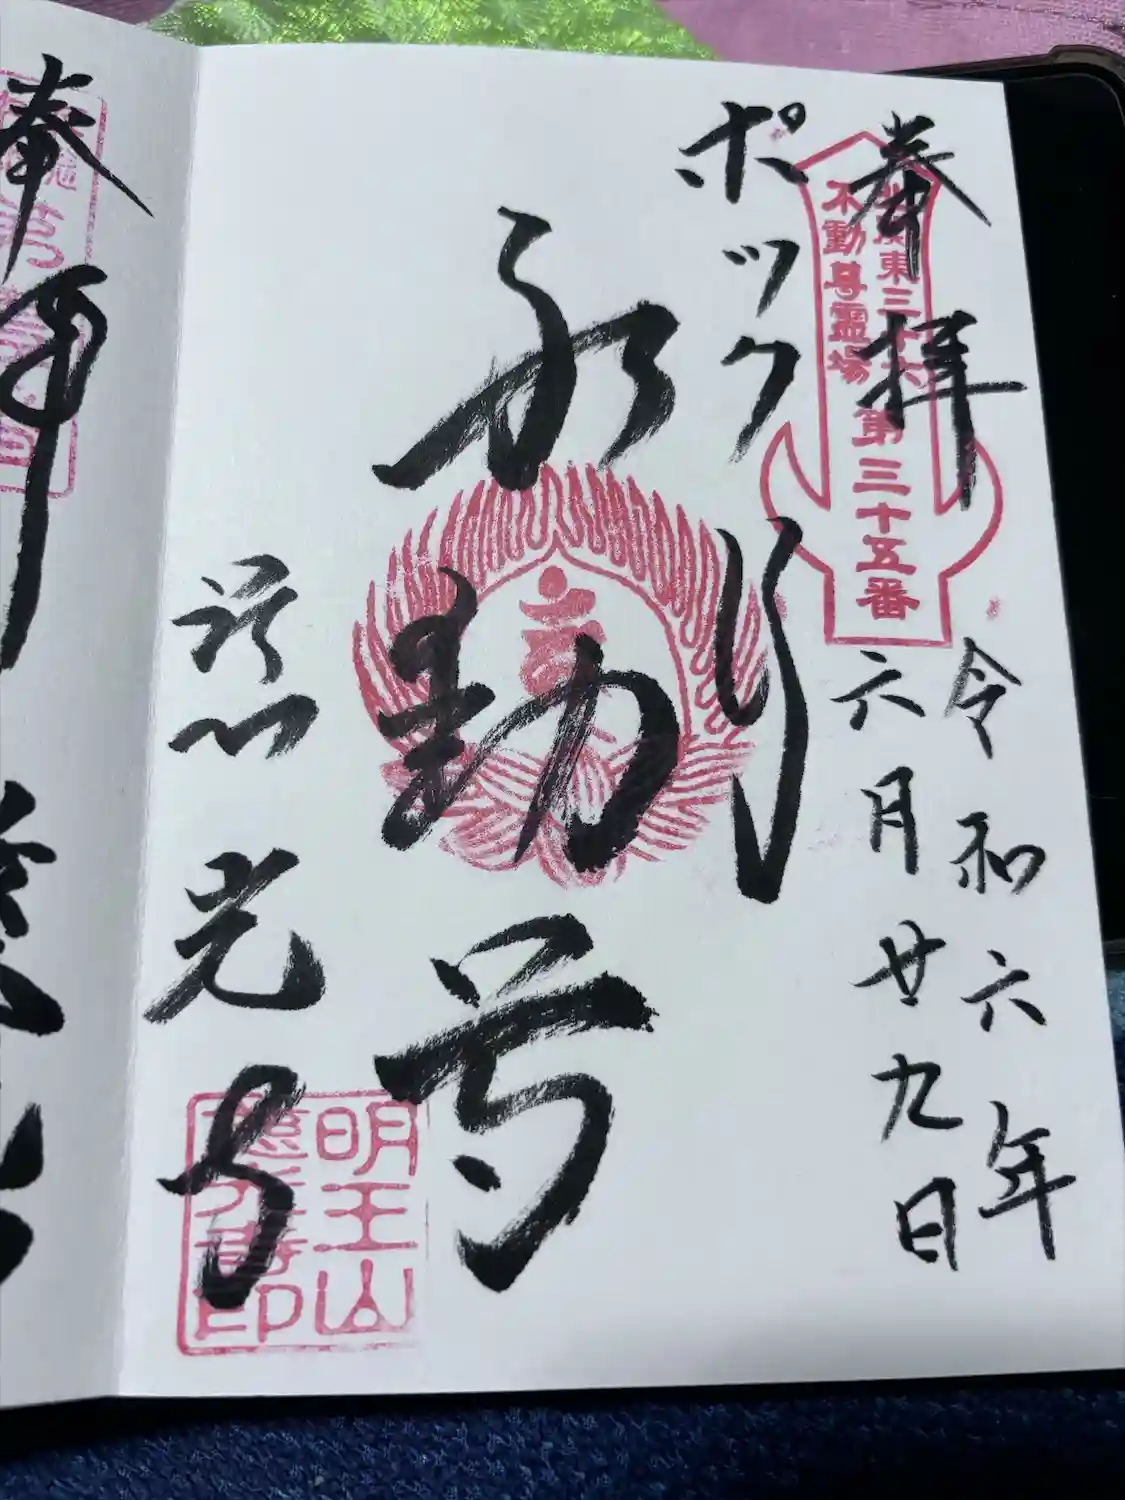 奉拝
令和六年
六月廿九日
北関東三十六
不動尊霊場
第三十五番
ポックリ
不動尊
慈光寺
明王山
慈光寺印
奉拝